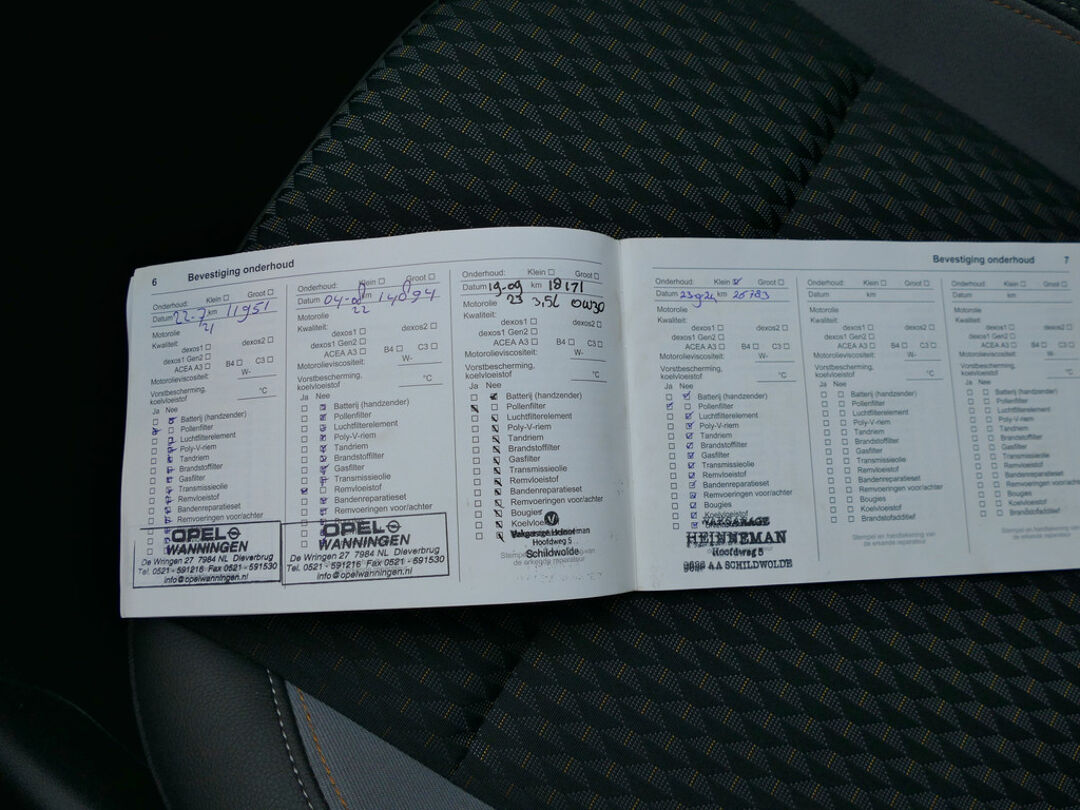 6
Bevestiging onderhoud
Onderhoud: Klein ☐ Groot ☐
Datum 22-7 km 11951
21
Motorolie
Kwaliteit:
dexos1 ☐ dexos2 ☐
dexos1 Gen2 ☐
ACEA A3 ☐ B4 ☐ C3 ☐
Motorolieviscositeit: W-
Vorstbescherming,
koelvloeistof °C
Ja Nee
Batterij (handzender)
Pollenfilter
Luchtfilterelement
Poly-V-riem
Tandriem
Brandstoffilter
Gasfilter
Transmissieolie
Remvloeistof
Bandenreparatieset
Remvoeringen voor/achter
OPEL
WANNINGEN
De Wringen 27 7984 NL Dieverbrug
Tel. 0521 - 591216 Fax 0521 - 591530
info@opelwanningen.nl
Onderhoud: Klein ☐ Groot ☐
Datum 04-08 km 14094
22
Motorolie
Kwaliteit:
dexos1 ☐ dexos2 ☐
dexos1 Gen2 ☐
ACEA A3 ☐ B4 ☐ C3 ☐
Motorolieviscositeit: W-
Vorstbescherming,
koelvloeistof °C
Ja Nee
Batterij (handzender)
Pollenfilter
Luchtfilterelement
Poly-V-riem
Tandriem
Brandstoffilter
Gasfilter
Transmissieolie
Remvloeistof
Bandenreparatieset
Remvoeringen voor/achter
OPEL
WANNINGEN
De Wringen 27 7984 NL Dieverbrug
Tel. 0521 - 591216 Fax 0521 - 591530
info@opelwanningen.nl
Onderhoud: Klein ☐ Groot ☐
Datum 19-09 km 18171
Motorolie 23 3,5L 0W30
Kwaliteit:
dexos1 ☐ dexos2 ☐
dexos1 Gen2 ☐
ACEA A3 ☐ B4 ☐ C3 ☐
Motorolieviscositeit: W-
Vorstbescherming,
koelvloeistof °C
Ja Nee
Batterij (handzender)
Pollenfilter
Luchtfilterelement
Poly-V-riem
Tandriem
Brandstoffilter
Gasfilter
Transmissieolie
Remvloeistof
Bandenreparatieset
Remvoeringen voor/achter
Bougies
Hoofdweg 5
Schildwolde
de erkende reparateur
Bevestiging onderhoud
7
Onderhoud: Klein ☑ Groot ☐
Datum 23-9-24 km 26783
Motorolie
Kwaliteit:
dexos1 ☐ dexos2 ☐
dexos1 Gen2 ☐
ACEA A3 ☐ B4 ☐ C3 ☐
Motorolieviscositeit: W-
Vorstbescherming,
koelvloeistof °C
Ja Nee
Batterij (handzender)
Pollenfilter
Luchtfilterelement
Poly-V-riem
Tandriem
Brandstoffilter
Gasfilter
Transmissieolie
Remvloeistof
Bandenreparatieset
Remvoeringen voor/achter
Bougies
Koelvloeistof
VAKGARAGE
HEINNEMAN
Hoofdweg 5
AA SCHILDWOLDE
Onderhoud: Klein ☐ Groot ☐
Datum km
Motorolie
Kwaliteit:
dexos1 ☐ dexos2 ☐
dexos1 Gen2 ☐
ACEA A3 ☐ B4 ☐ C3 ☐
Motorolieviscositeit: W-
Vorstbescherming,
koelvloeistof °C
Ja Nee
Batterij (handzender)
Pollenfilter
Luchtfilterelement
Poly-V-riem
Tandriem
Brandstoffilter
Gasfilter
Transmissieolie
Remvloeistof
Bandenreparatieset
Remvoeringen voor/achter
Bougies
Koelvloeistof
Brandstofadditief
Stempel en handtekening van
de erkende reparateur
Onderhoud: Klein ☐ Groot ☐
Datum km
Motorolie
Kwaliteit:
dexos1 ☐ dexos2 ☐
dexos1 Gen2 ☐
ACEA A3 ☐ B4 ☐ C3 ☐
Motorolieviscositeit: W-
Vorstbescherming,
koelvloeistof °C
Ja Nee
Batterij (handzender)
Pollenfilter
Luchtfilterelement
Poly-V-riem
Tandriem
Brandstoffilter
Gasfilter
Transmissieolie
Remvloeistof
Bandenreparatieset
Remvoeringen voor/achter
Bougies
Koelvloeistof
Brandstofadditief
Stempel en handtekening van
de erkende reparateur